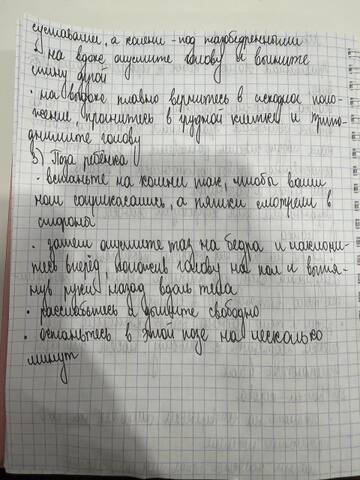 суставами, а колени - под тазобедренными
· на вдохе опустите голову и выгните
спину дугой
· на выдохе плавно вернитесь в исходное поло-
жение, прогнитесь в грудной клетке и припо-
днимите голову
3) Поза ребёнка
· встаньте на колени так, чтобы ваши
ноги соприкасались, а пятки смотрели в
стороны
· затем опустите таз на бедра и наклони-
тесь вперёд, положив голову на пол и вытя-
нув руки назад вдоль тела
· расслабьтесь и дышите свободно
· останьтесь в этой позе на несколько
минут